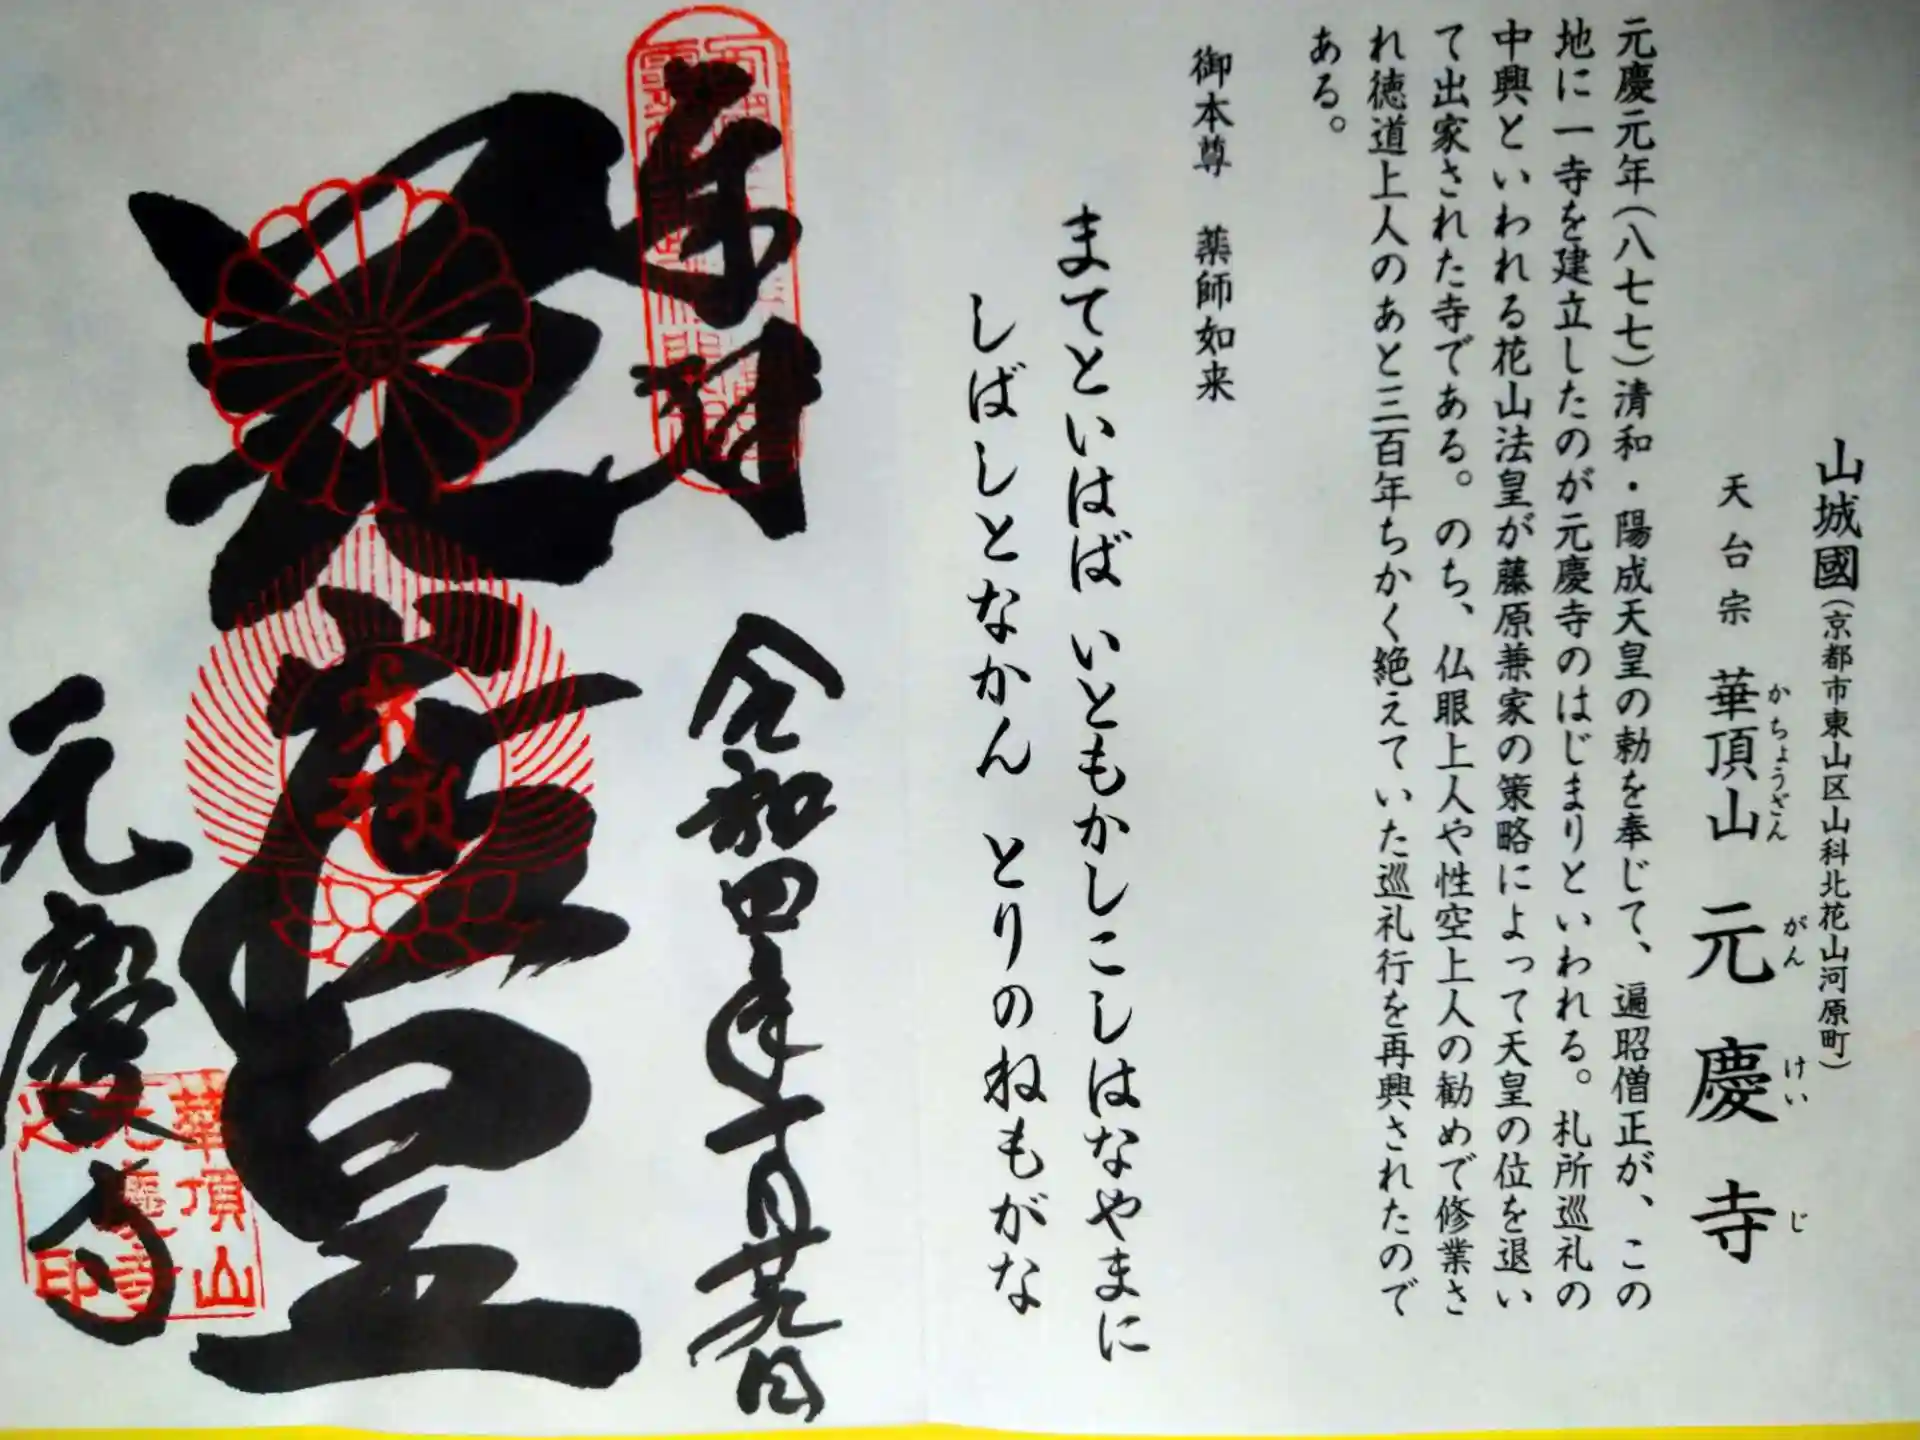 山城國(京都市東山区山科北花山河原町)
天台宗 華頂山 元慶寺
かちょうざん がんけいじ
元慶元年(八七七)清和・陽成天皇の勅を奉じて、遍昭僧正が、この
地に一寺を建立したのが元慶寺のはじまりといわれる。札所巡礼の
中興といわれる花山法皇が藤原兼家の策略によって天皇の位を退い
て出家された寺である。のち、仏眼上人や性空上人の勧めで修業さ
れ徳道上人のあと三百年ちかく絶えていた巡礼行を再興されたので
ある。
御本尊 薬師如来
まてといはば いともかしこしはなやまに
しばしとなかん とりのねもがな
奉拝
令和四年十月廿九日
元
元慶寺
華頂山
元慶寺
之印